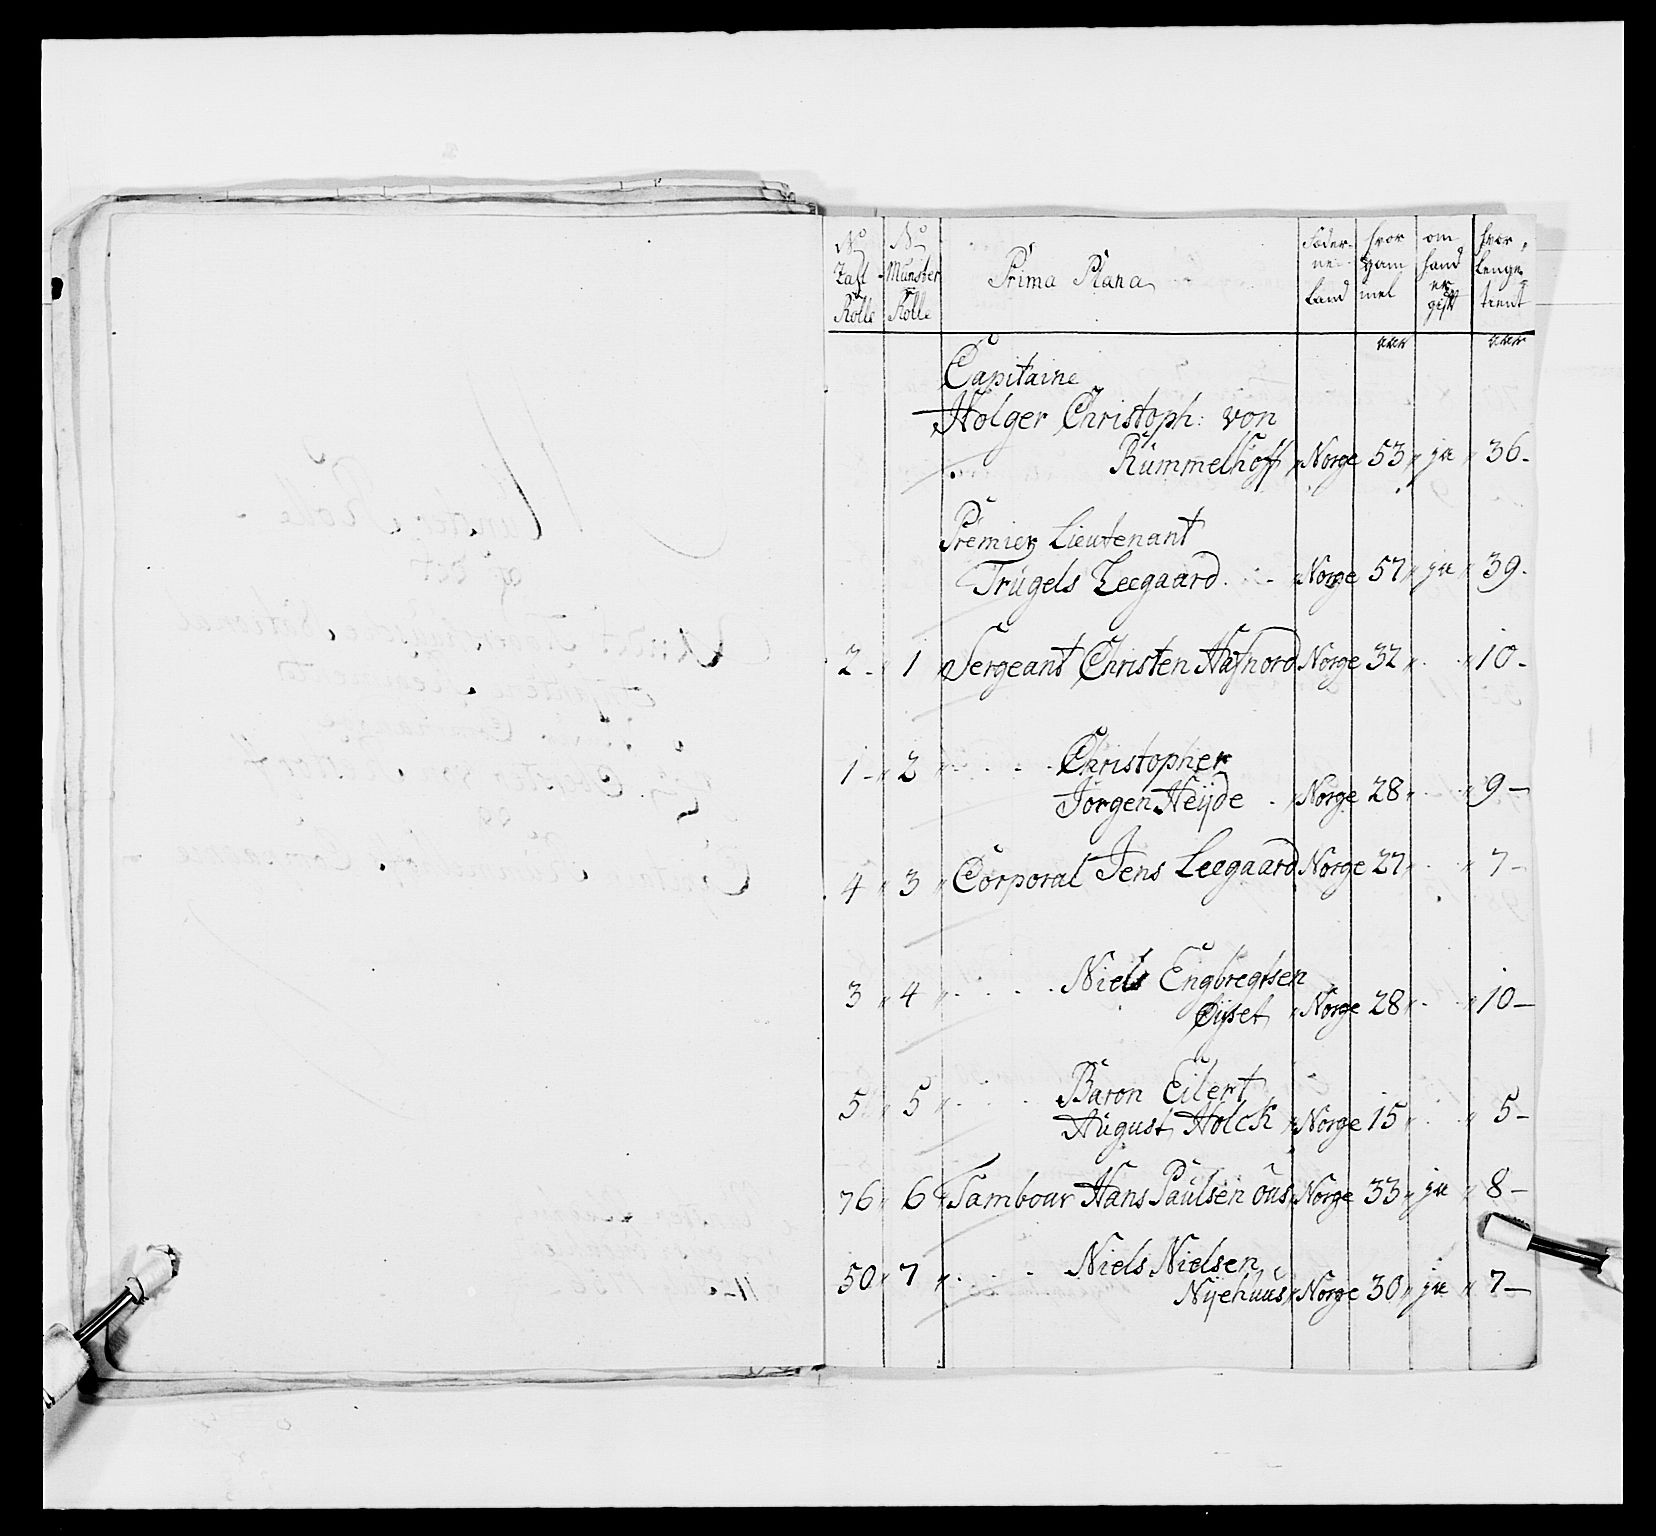 No Zahl Rolle | No Munster Rolle | Prima Plana | Föderne Land | hvor gammel | om hand er gift | hvor lenge tient
aar | aar
Capitaine
Holger Christoph: von
Rúmmelhoff „ Norge 53 „ ja „ 36 -
Premier Lieutenant
Trúgels Leegaard . . - „ Norge 57 „ ja „ 39 -
2 - „ 1 „ Sergeant Christen Hafnord Norge 32 „ . . „ 10 -
1 - „ 2 „ . . . . Christopher
Jörgen Heÿde . „ Norge 28 „ . . „ 9 -
4 „ 3 „ Corporal Jens Leegaard Norge 27 „ . . „ 7 -
3 „ 4 „ . . . . Niels Engbregtsen
Öÿset „ Norge 28 „ . . „ 10 -
5 „ 5 „ . . . Baron Eilert
Aúgust Holck „ Norge 15 „ . . „ 5 -
76 „ 6 „ Tambour Hans Paúlsen oús Norge 33 „ ja „ 8 -
50 „ 7 „ . . . Niels Nielsen
Nÿehuús „ Norge 30 „ ja „ 7 -